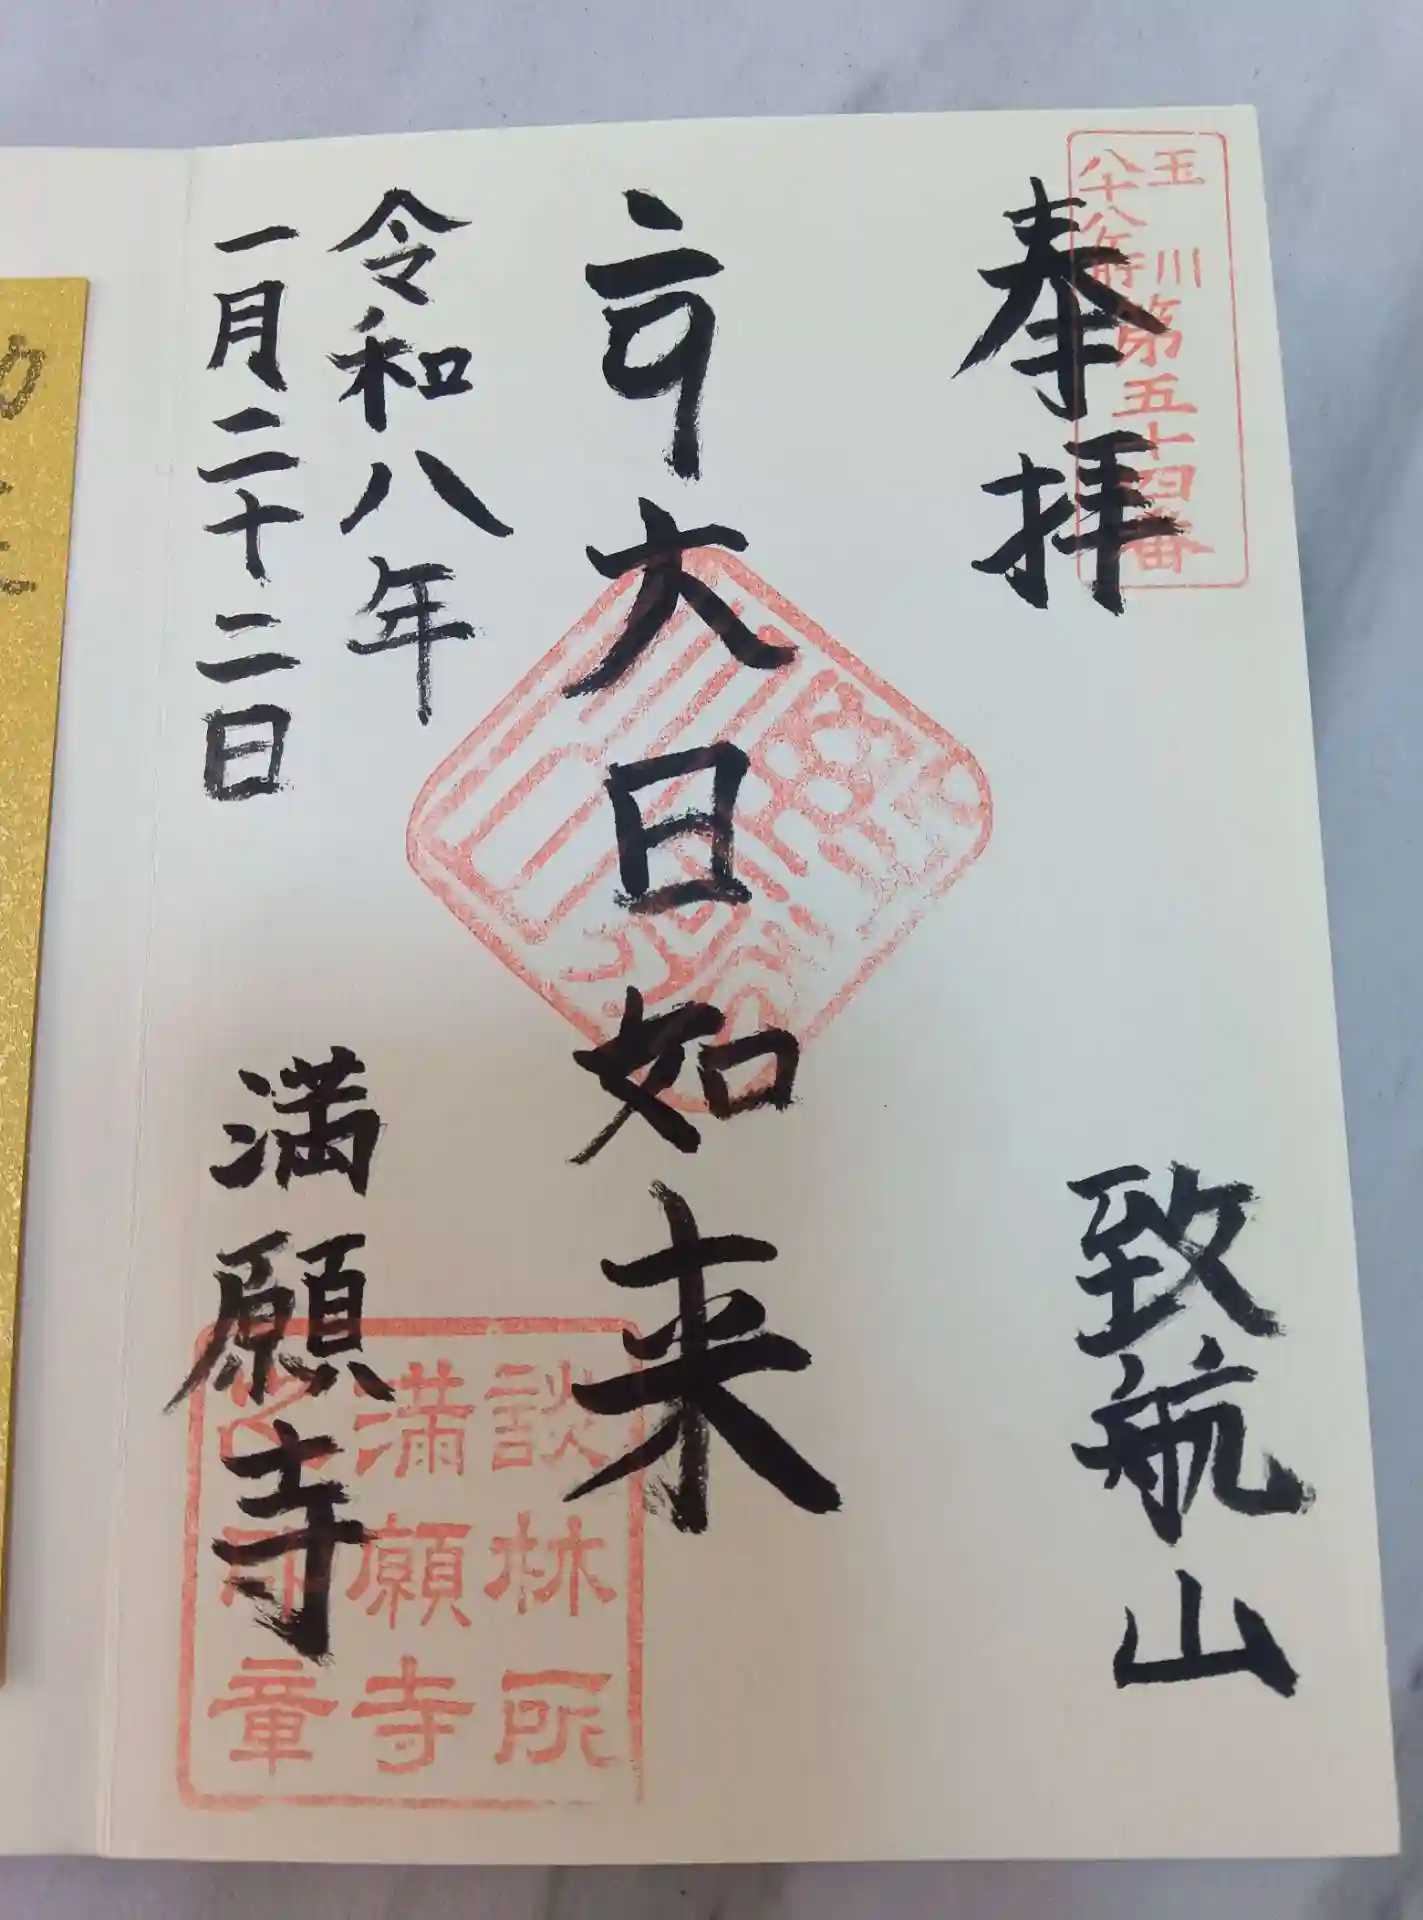 玉川
八十八ケ所
第五十四番
奉拝
致航山
大日如来
令和八年
一月二十二日
満願寺
談林所
満願寺
之印章